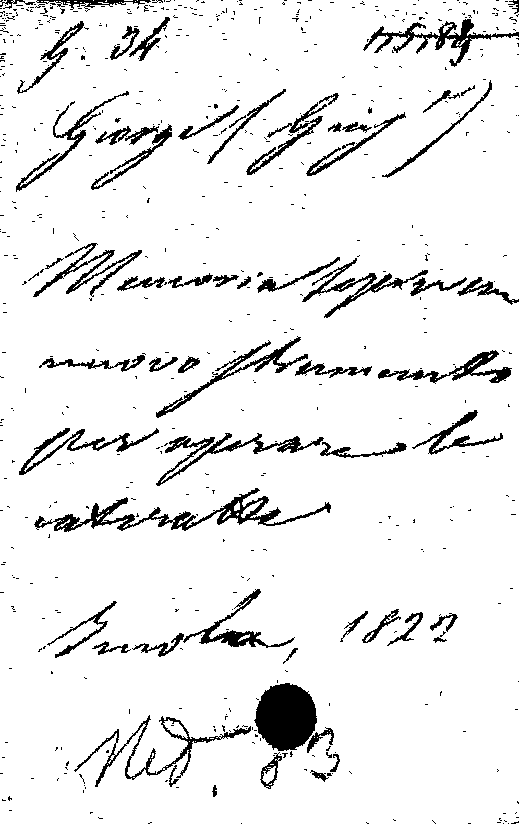 G. 34 1,5,83
Giorgi (Grig.)
Memoria sopra un
nuovo strumento
per operare le
cateratte
Imola, 1822
Med. 83